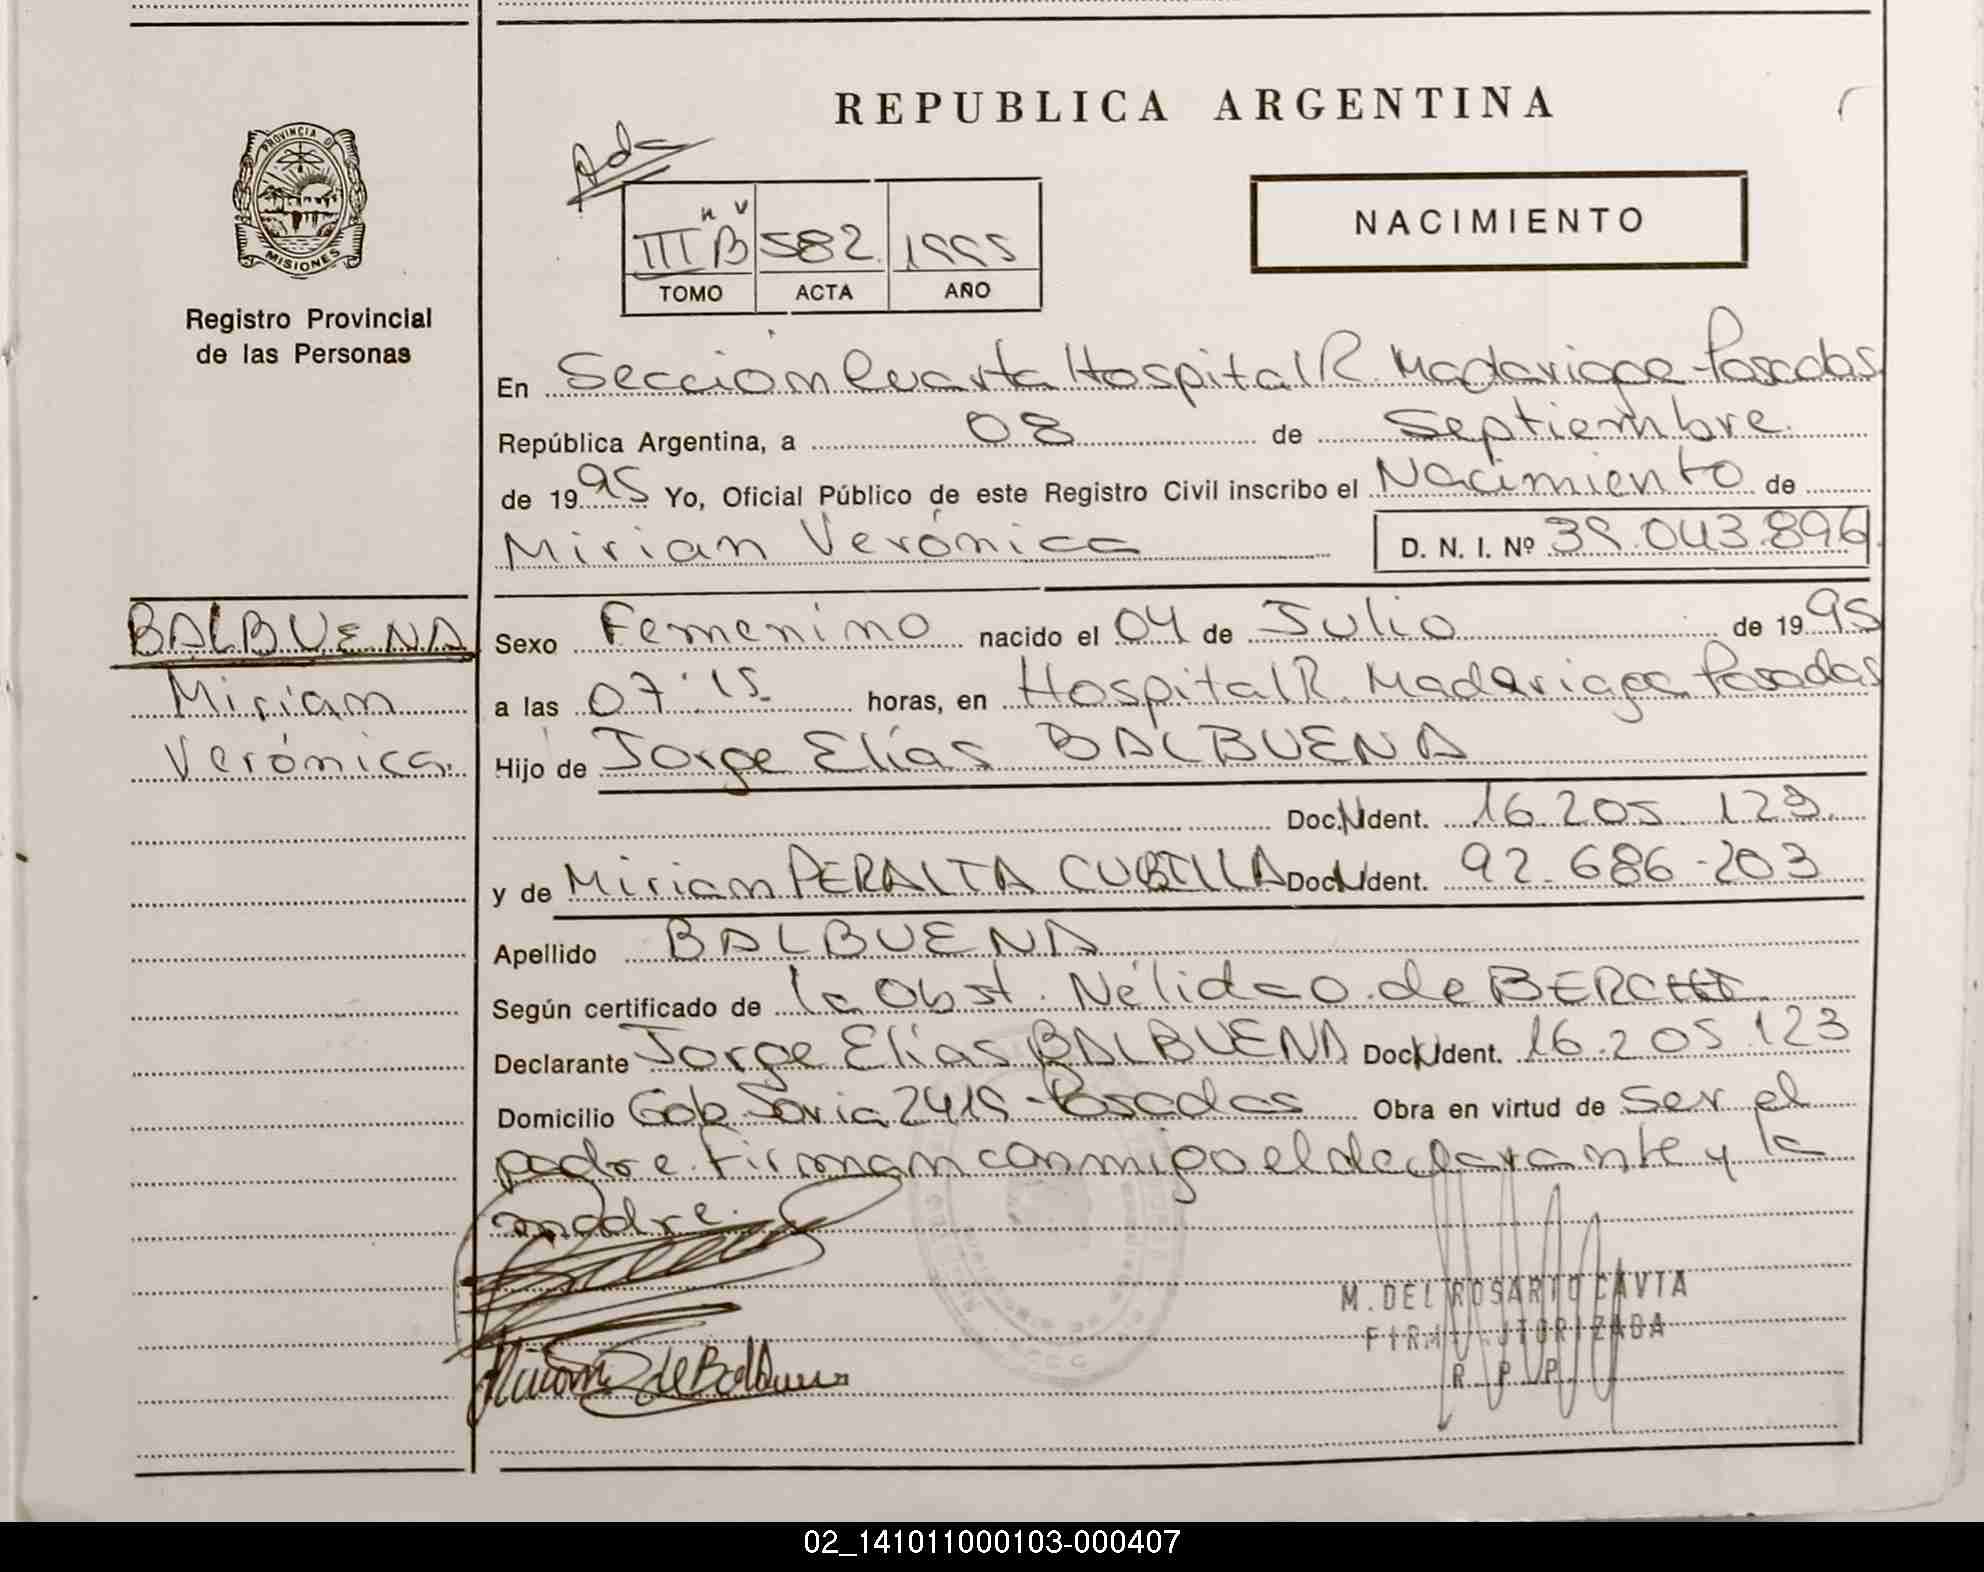 REPUBLICA ARGENTINA
PROVINCIA DE
MISIONES
Registro Provincial
de las Personas
Ada
III B 582 1995
TOMO ACTA AÑO
NACIMIENTO
En Sección Cuarta Hospital R. Madariaga - Posadas
República Argentina, a 08 de Septiembre
de 1995 Yo, Oficial Público de este Registro Civil inscribo el Nacimiento de
Mirian Verónica D. N. I. Nº 39.043.896
BALBUENA
Miriam
Verónica
Sexo Femenino nacido el 04 de Julio de 1995
a las 07:15 horas, en Hospital R. Madariaga Posadas
Hijo de Jorge Elías BALBUENA
Doc. N Ident. 16.205.123
y de Miriam PERALTA CUBILLA Doc N Ident. 92.686.203
Apellido BALBUENA
Según certificado de la Obst. Nélida O. de
Declarante Jorge Elías BALBUENA Doc N Ident. 16.205.123
Domicilio Gob. Soria 2415 - Posadas Obra en virtud de ser el
padre. Firman conmigo el declarante y la
madre.
M. DEL ROSARIO CAVIA
FIRMA AUTORIZADA
R P P
02_141011000103-000407